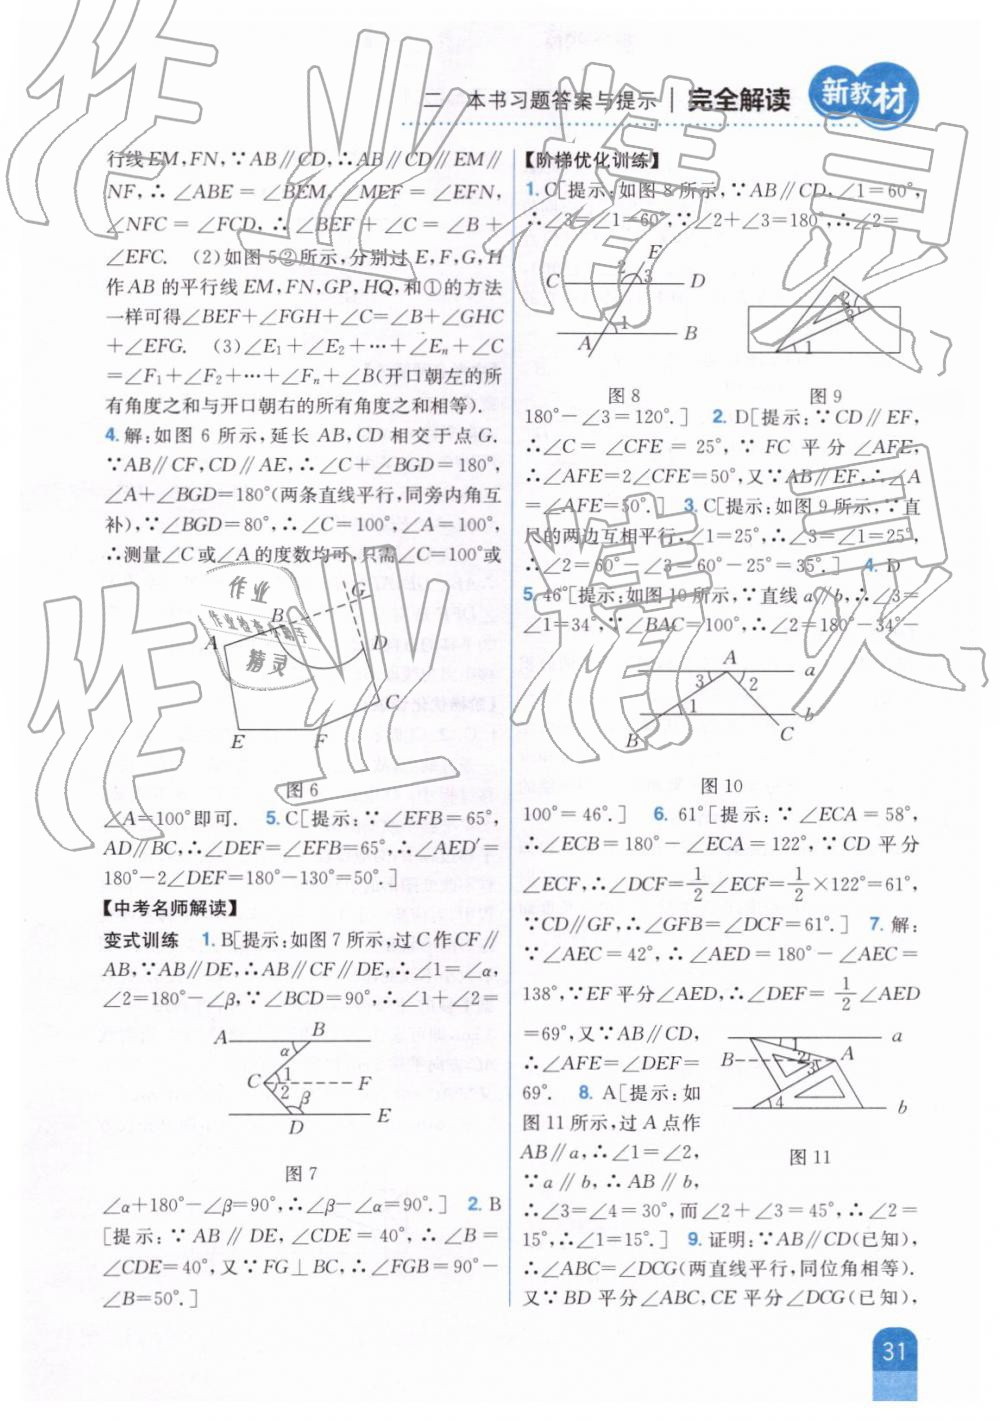 二 本书习题答案与提示 | 完全解读 新教材
行线EM,FN,∵AB∥CD,∴AB∥CD∥EM∥
NF,∴∠ABE=∠BEM,∠MEF=∠EFN,
∠NFC=∠FCD,∴∠BEF+∠C=∠B+
∠EFC. (2)如图5②所示,分别过E,F,G,H
作AB的平行线EM,FN,GP,HQ,和①的方法
一样可得∠BEF+∠FGH+∠C=∠B+∠GHC
+∠EFG. (3)∠E₁+∠E₂+…+∠Eₙ+∠C
=∠F₁+∠F₂+…+∠Fₙ+∠B(开口朝左的所
有角度之和与开口朝右的所有角度之和相等).
4.解:如图6所示,延长AB,CD相交于点G.
∵AB∥CF,CD∥AE,∴∠C+∠BGD=180°,
∠A+∠BGD=180°(两条直线平行,同旁内角互
补),∵∠BGD=80°,∴∠C=100°,∠A=100°,
∴测量∠C或∠A的度数均可,只需∠C=100°或
G
B
A
D
C
E
F
图6
∠A=100°即可. 5.C[提示:∵∠EFB=65°,
AD∥BC,∴∠DEF=∠EFB=65°,∴∠AED′=
180°-2∠DEF=180°-130°=50°.]
【中考名师解读】
变式训练 1.B[提示:如图7所示,过C作CF∥
AB,∵AB∥DE,∴AB∥CF∥DE,∴∠1=∠α,
∠2=180°-∠β,∵∠BCD=90°,∴∠1+∠2=
A B
α
C 1 F
2 β
D E
图7
∠α+180°-∠β=90°,∴∠β-∠α=90°.] 2.B
[提示:∵AB∥DE,∠CDE=40°,∴∠B=
∠CDE=40°,又∵FG⊥BC,∴∠FGB=90°-
∠B=50°.]
【阶梯优化训练】
1.C[提示:如图8所示,∵AB∥CD,∠1=60°,
∴∠3=∠1=60°,∵∠2+∠3=180°,∴∠2=
E
2
C 3 D
1
A B
图8
2
3
1
图9
180°-∠3=120°.] 2.D[提示:∵CD∥EF,
∴∠C=∠CFE=25°,∵FC平分∠AFE,
∴∠AFE=2∠CFE=50°,又∵AB∥EF,∴∠A
=∠AFE=50°.] 3.C[提示:如图9所示,∵直
尺的两边互相平行,∠1=25°,∴∠3=∠1=25°,
∴∠2=60°-∠3=60°-25°=35°.] 4.D
5.46°[提示:如图10所示,∵直线a∥b,∴∠3=
∠1=34°,∵∠BAC=100°,∴∠2=180°-34°-
A a
3 2
1 b
B C
图10
100°=46°.] 6.61°[提示:∵∠ECA=58°,
∴∠ECB=180°-∠ECA=122°,∵CD平分
∠ECF,∴∠DCF=1/2∠ECF=1/2×122°=61°,
∵CD∥GF,∴∠GFB=∠DCF=61°.] 7.解:
∵∠AEC=42°,∴∠AED=180°-∠AEC=
138°,∵EF平分∠AED,∴∠DEF=1/2∠AED
=69°,又∵AB∥CD,
∴∠AFE=∠DEF=
69°. 8.A[提示:如
图11所示,过A点作
AB∥a,∴∠1=∠2,
∵a∥b,∴AB∥b,
1 a
B 2 A
3
4 b
图11
∴∠3=∠4=30°,而∠2+∠3=45°,∴∠2=
15°,∴∠1=15°.] 9.证明:∵AB∥CD(已知),
∴∠ABC=∠DCG(两直线平行,同位角相等).
又∵BD平分∠ABC,CE平分∠DCG(已知),
31
作业精灵
作业精灵
作业
作业检查小助手
精灵